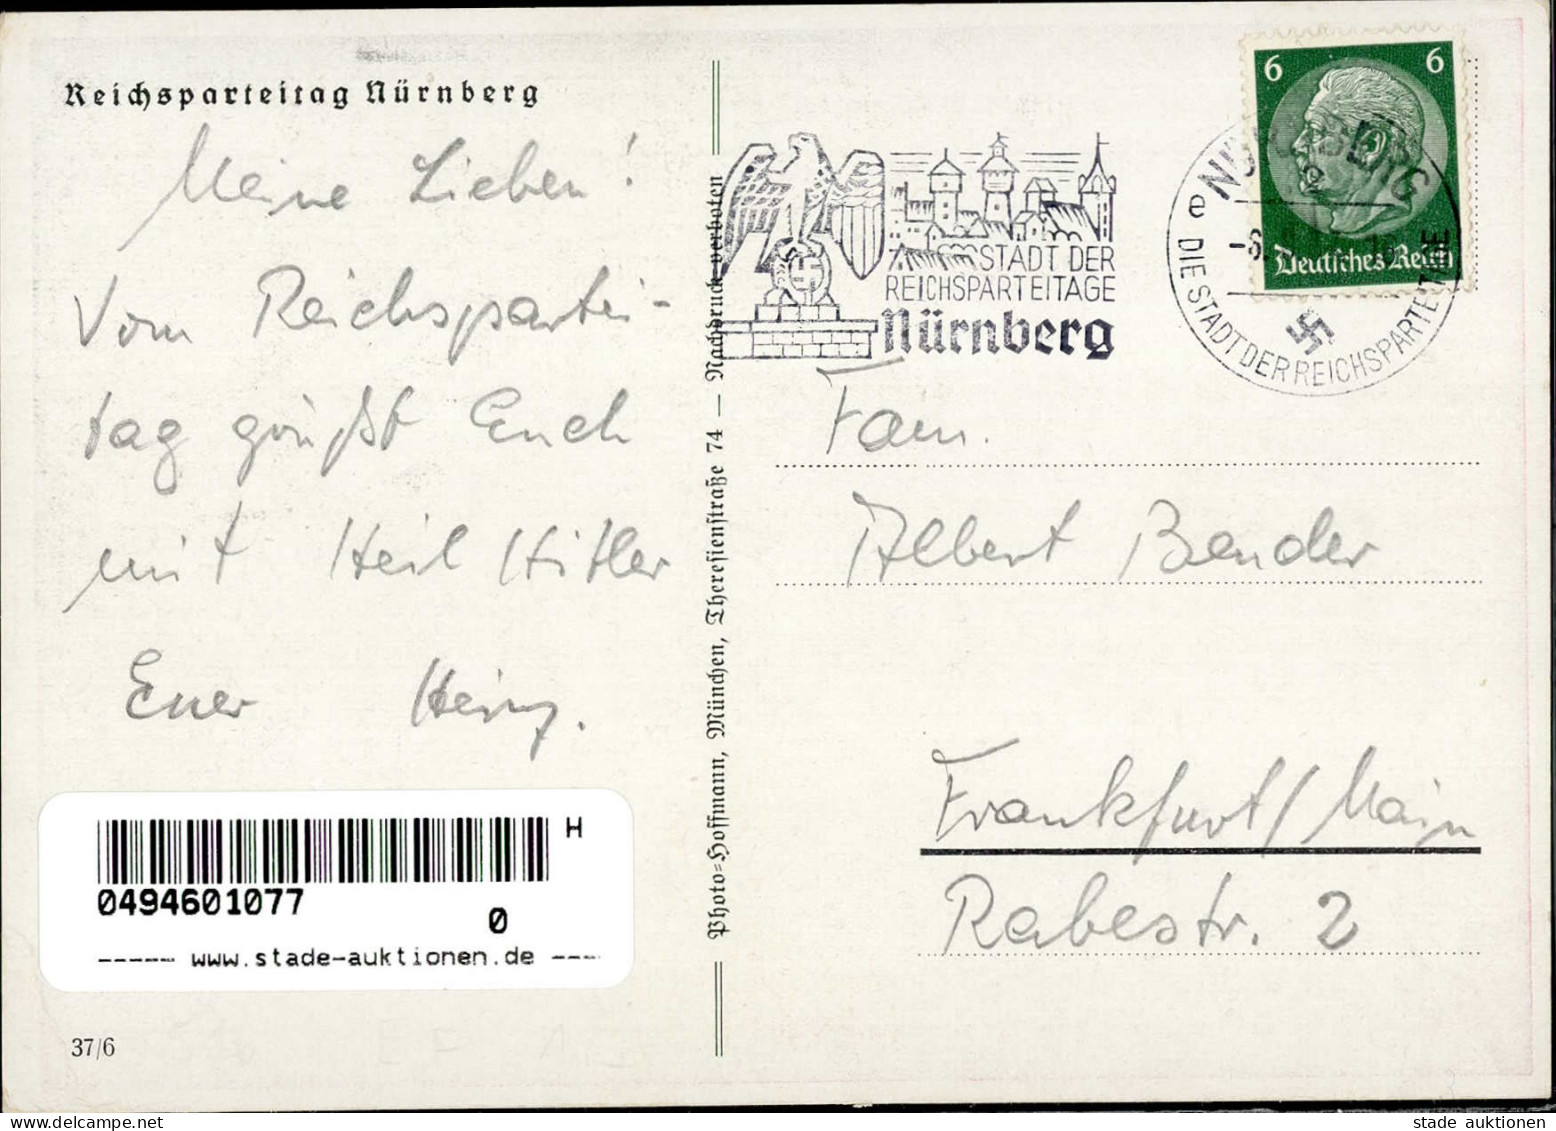 Reichsparteitag Nürnberg
Meine Lieben!
Vom Reichspartei-
tag grüßt Euch
mit Heil Hitler
Euer Heinz.
0494601077
H
0
----- www.stade-auktionen.de ----
37/6
Photo=Hoffmann, München, Theresienstraße 74 — Nachdruck verboten
STADT DER
REICHSPARTEITAGE
Nürnberg
NÜRNBERG
e
-6.
DIE STADT DER REICHSPARTEITAGE
6 6
Deutsches Reich
Fam.
Albert Bender
Frankfurt/Main
Rabestr. 2
stade auktionen